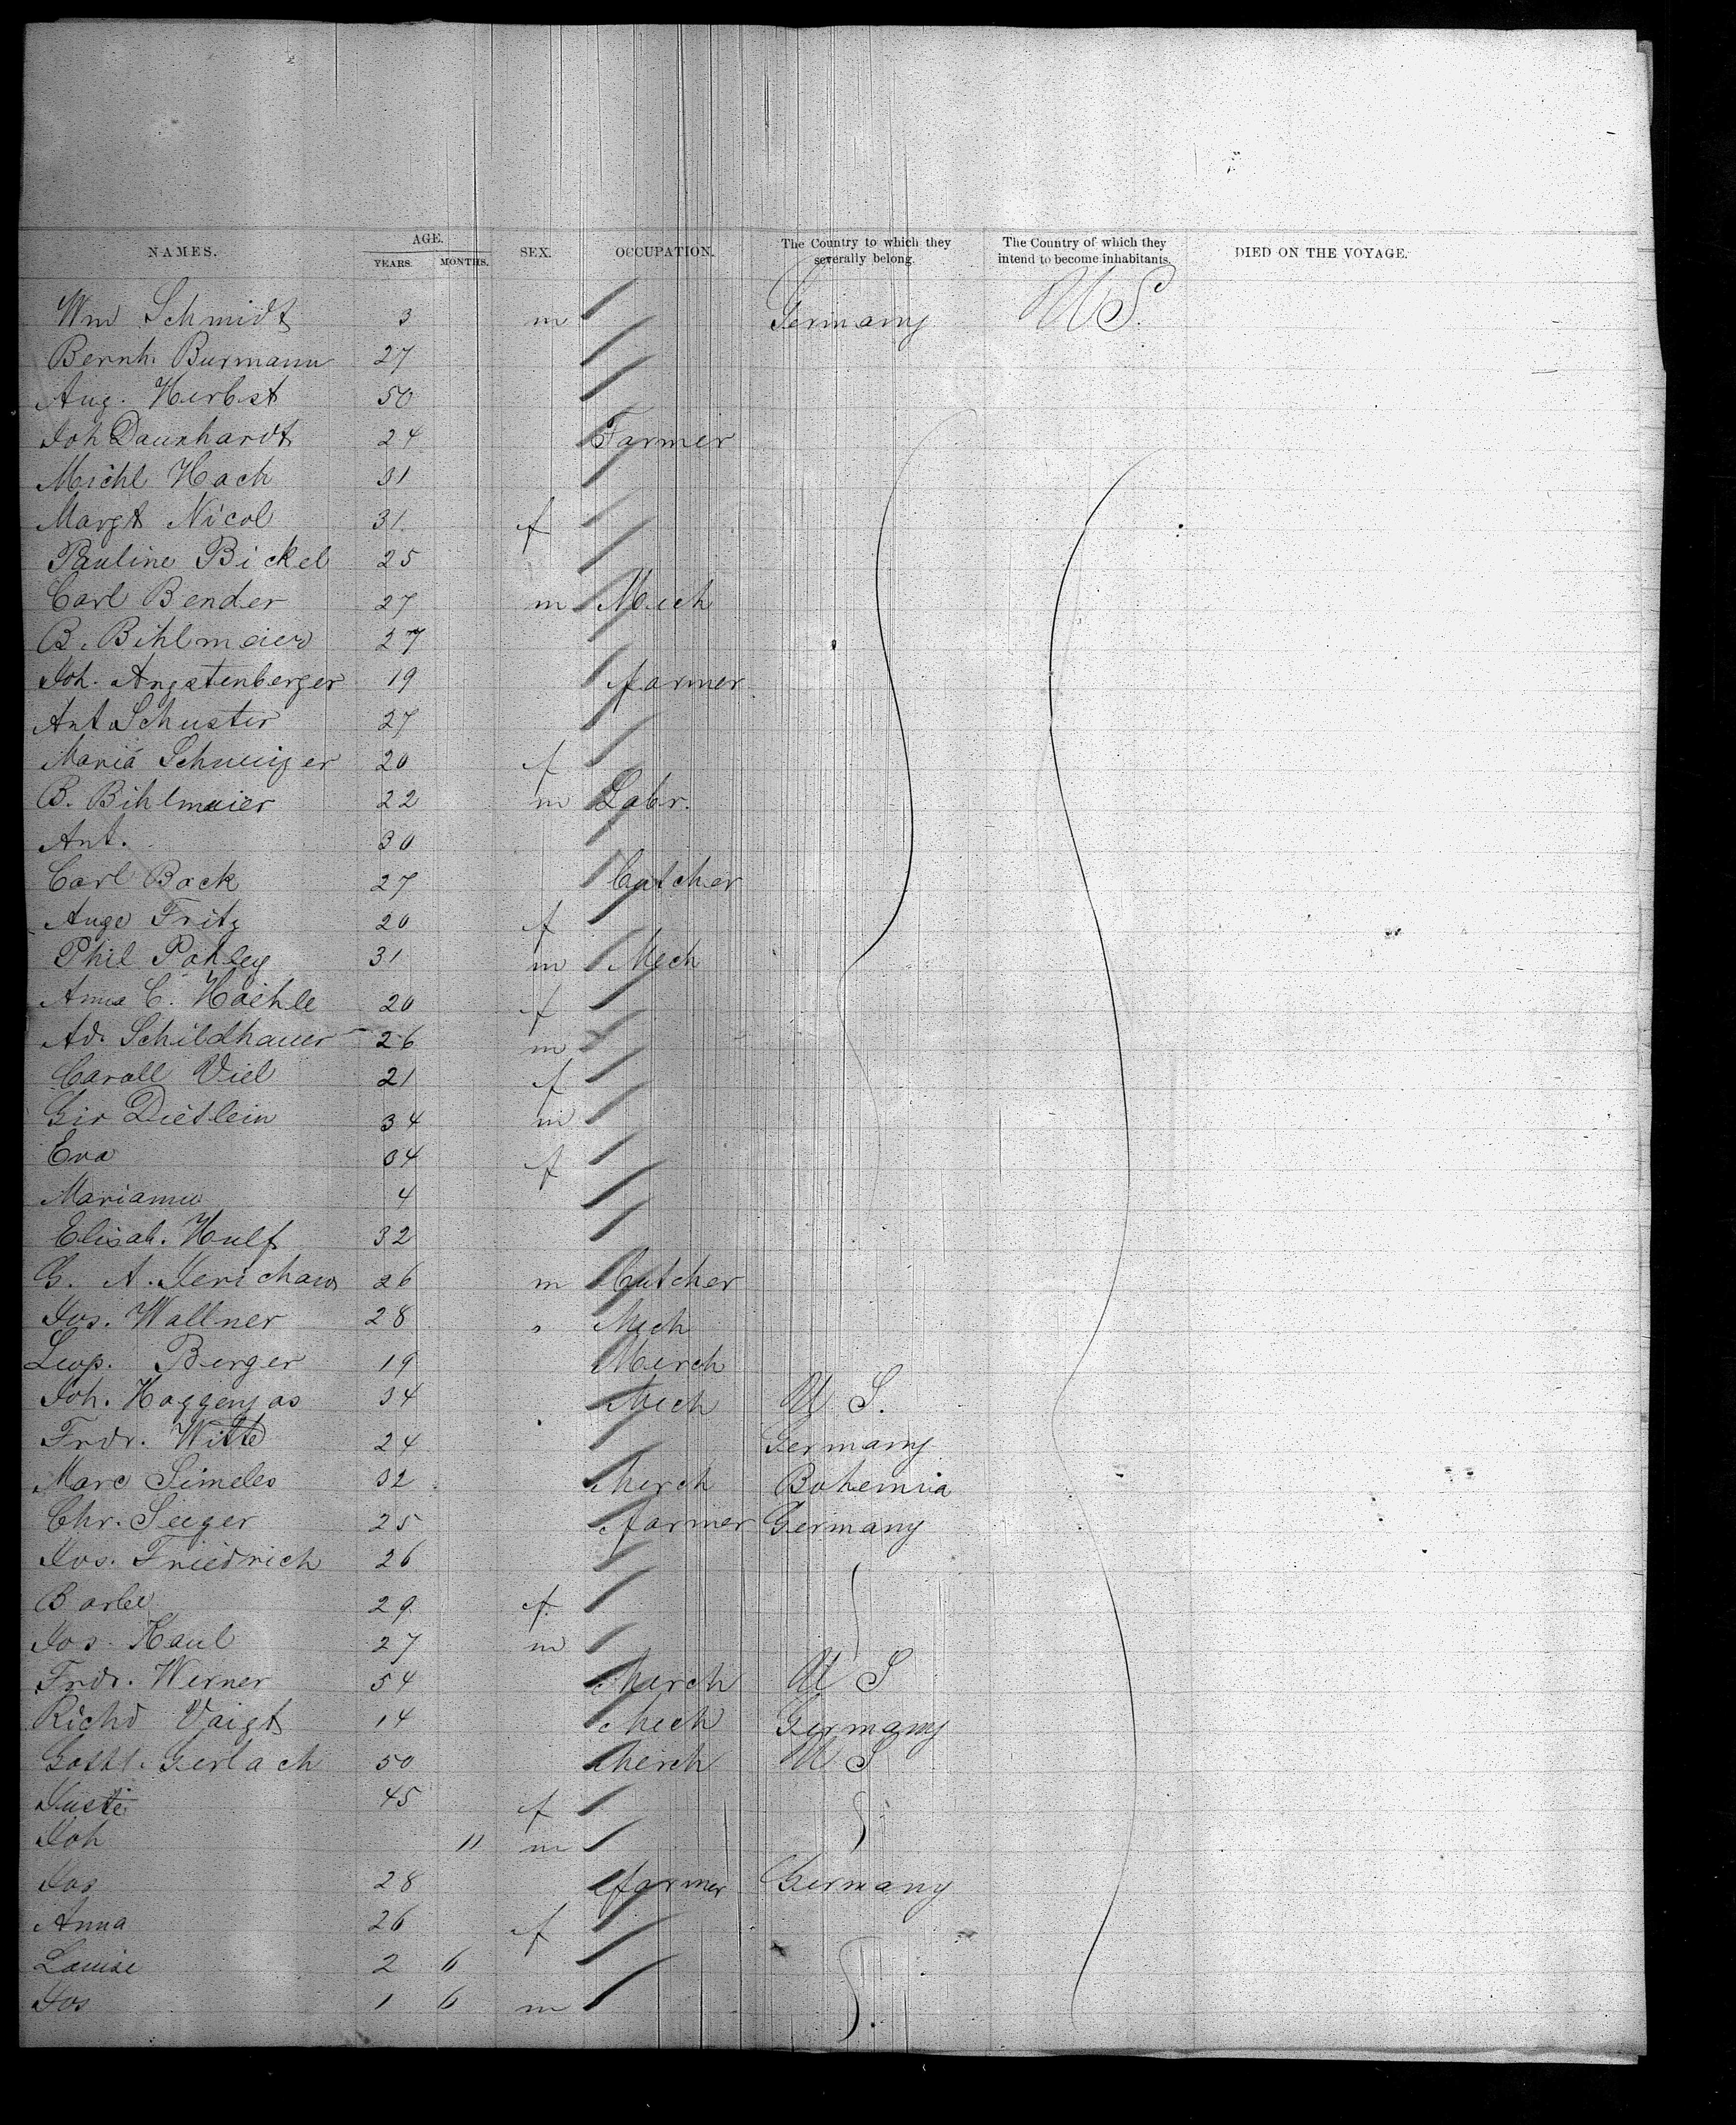 NAMES. AGE. YEARS. MONTHS. SEX. OCCUPATION. The Country to which they severally belong. The Country of which they intend to become inhabitants. DIED ON THE VOYAGE.
Wm Schmidt 3 m Germany US.
Bernh. Burmann 27
Aug. Herbst 50
Joh Daunhardt 24 Farmer
Michl Hach 31
Margt Nicol 31 f
Pauline Bickel 25
Carl Bender 27 m Mech
B. Bihlmaier 27
Joh. Angstenberger 19 farmer
Ant Schuster 27
Maria 20 f
B. Bihlmaier 22 m Labr.
Ant. 30
Carl Bock 27 Butcher
Auge Fritz 20 f
Phil Pohley 31 m Mech
Anna C. Haehle 20 f
Ad. Schildhauer 26 m
Caroll Viel 21 f
Dietlein 34 m
Eva 34 f
Marianne 4
Elisab. Hulf 32
G. A. Jerichaw 26 m Butcher
Jos. Wallner 28 " Mech
Leop. Berger 19 Merch
Joh. Haggenjos 34 Mech U S.
Frdr. Witte 24 Germany
Marc Simeles 32 Merch Bohemia
Chr. Seeger 25 farmer Germany
Jos. Friedrich 26
Barbe 29 f
Jos. Kaul 27 m
Frdr. Werner 54 Merch U S
Richd Vaigt 14 Mech Germany
Gottl. Gerlach 50 Merch U S
Juste 45 f
Joh 11 m
Jos 28 farmer Germany
Anna 26 f
Louise 2 6
Jos 1 6 m